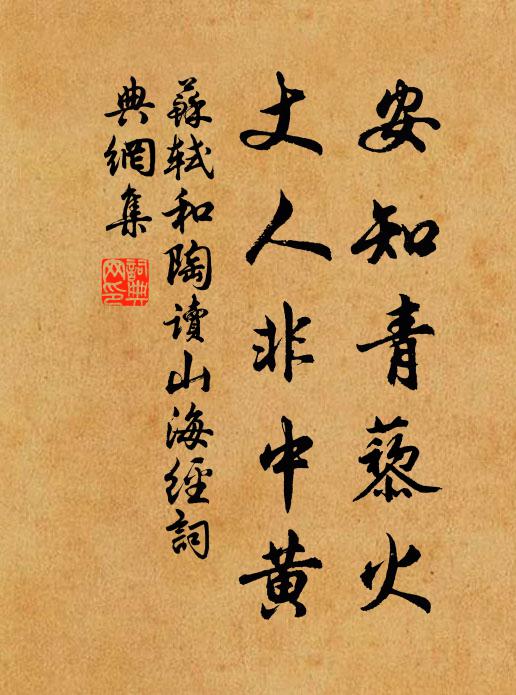 安知青藜火
丈人非中黄
蘇軾和陶讀山海經詞
典網集
詞典
网印